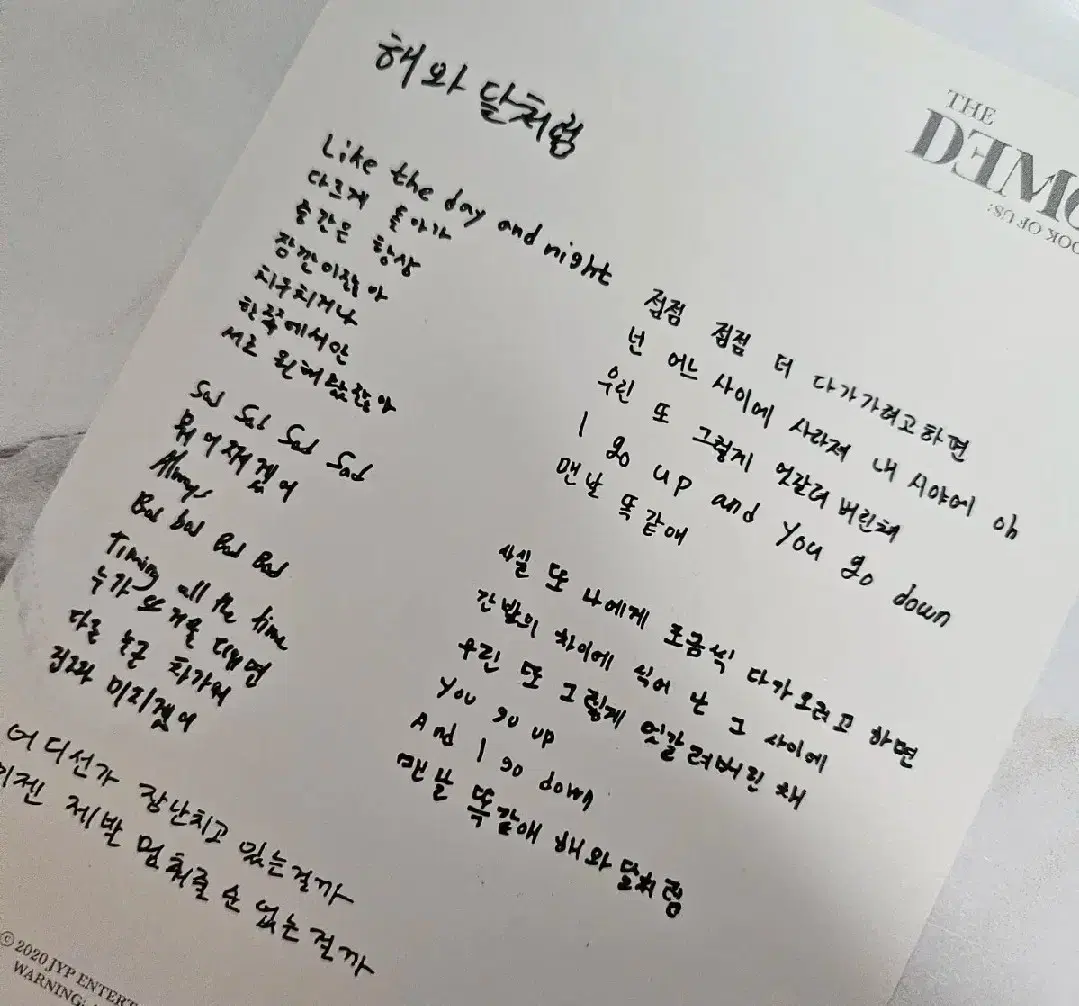 해와 달처럼
THE
DEMO
BOOK OF US:
Like the day and night
다르게 돌아가
중간은 항상
잠깐이잖아
치우치거나
한쪽에서만
서로 원해왔잖아
Sad Sad Sad Sad
뭐 어쩌겠어
Always
Bad bad Bad Bad
Timing all the time
누가 뜨거울 때면
다른 누군 차가워
진짜 미치겠어
어디선가 장난치고 있는걸까
이젠 제발 멈춰줄 순 없는걸까
점점 점점 더 다가가려고하면
넌 어느 사이에 사라져 내 시야에 oh
우린 또 그렇게 엇갈려 버린채
I go up and You go down
맨날 똑같애
사실 또 나에게 조금씩 다가오려고 하면
간발의 차이에 식어 난 그 사이에
우린 또 그렇게 엇갈려버린 채
You go up
And I go down
맨날 똑같애 해와 달처럼
ⓒ 2020 JYP ENTERT
WARNING: